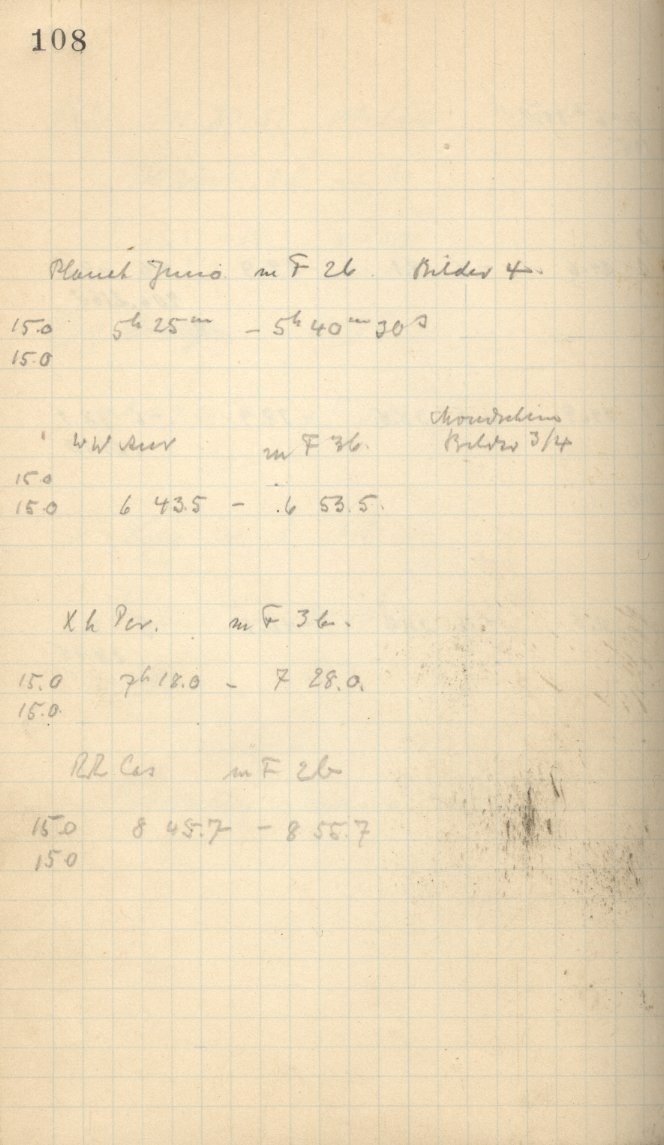 108
Planet Juno m F 2b. Bilder 4.
15.0 5h 25m - 5h 40m 30s
15.0
Mondschein
WW Aur m F 3b. Bilder 3/4
15.0
15.0 6 43.5 - 6 53.5.
χ h Per. m F 3b.
15.0 7h 18.0 - 7 28.0.
15.0.
RR Cas m F 2b
15.0 8 45.7 - 8 55.7
15.0